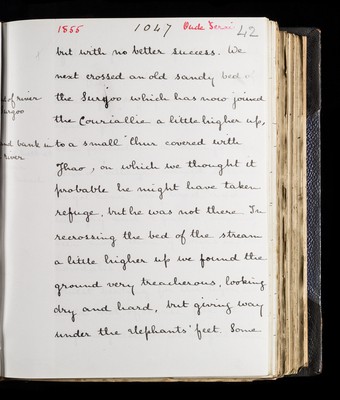 1855 1047 Oude Terai 42
but with no better success. We
next crossed an old sandy bed of
the Surjoo which has now joined
the Couriallie a little higher up,
to a small "Chur covered with
Jhao, on which we thought it
probable he might have taken
refuge, but he was not there. In
recrossing the bed of the stream
a little higher up we found the
ground very treacherous, looking
dry and hard, but giving way
under the elephants' feet. Some
d of river
urjoo
nd bank in
river